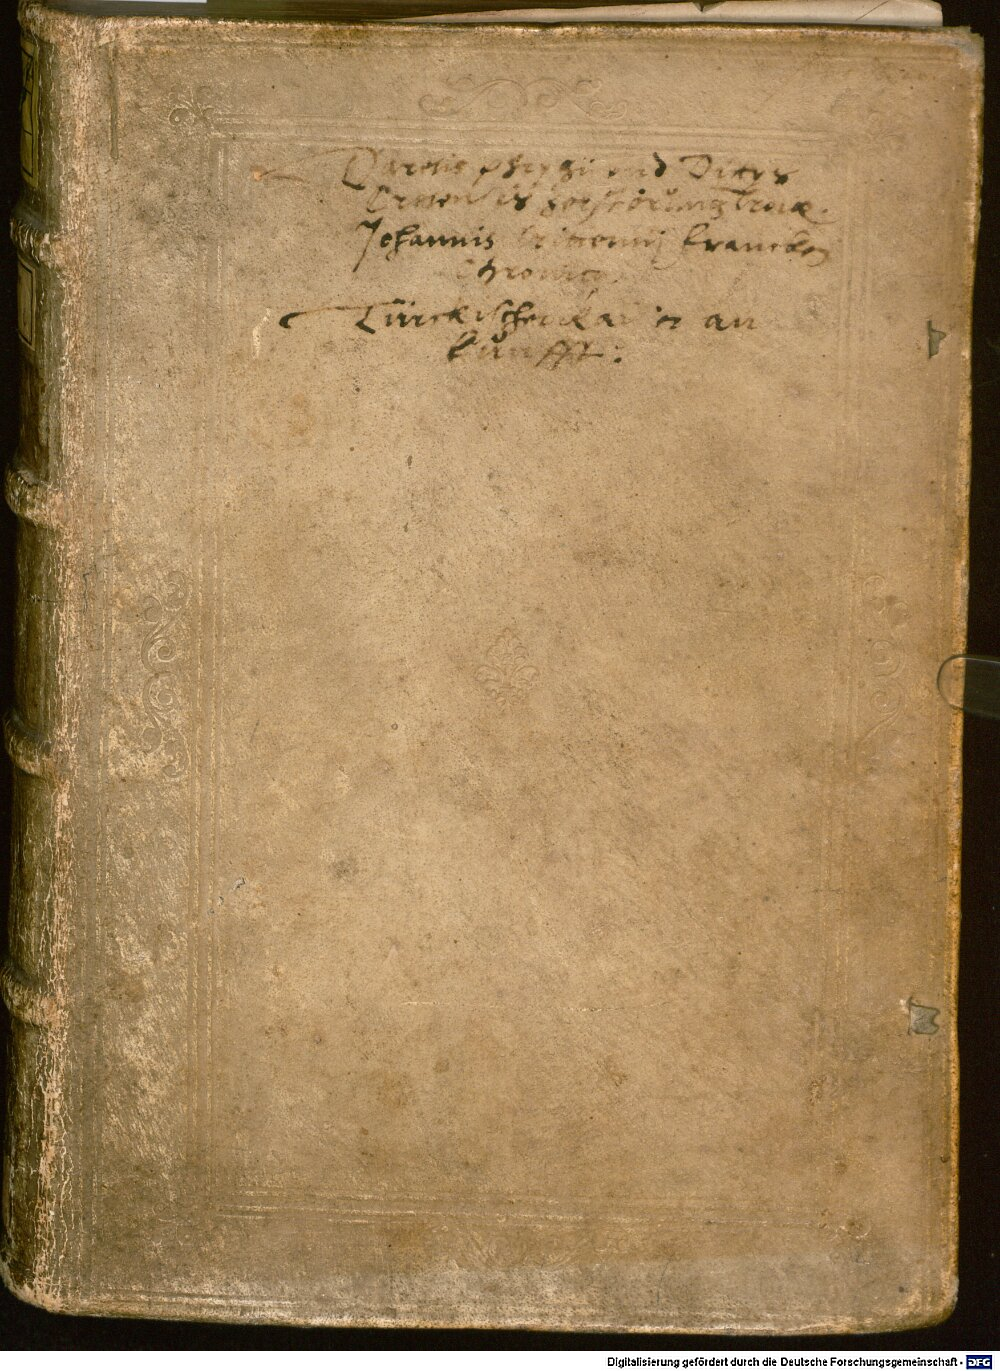 Daretis phrygij vnd Ditys
Cretensis zerstörung troiæ.
Johannis trittemij francken
Chronica.
Türckischer kaiser an
kunfft:
Digitalisierung gefördert durch die Deutsche Forschungsgemeinschaft - DFG